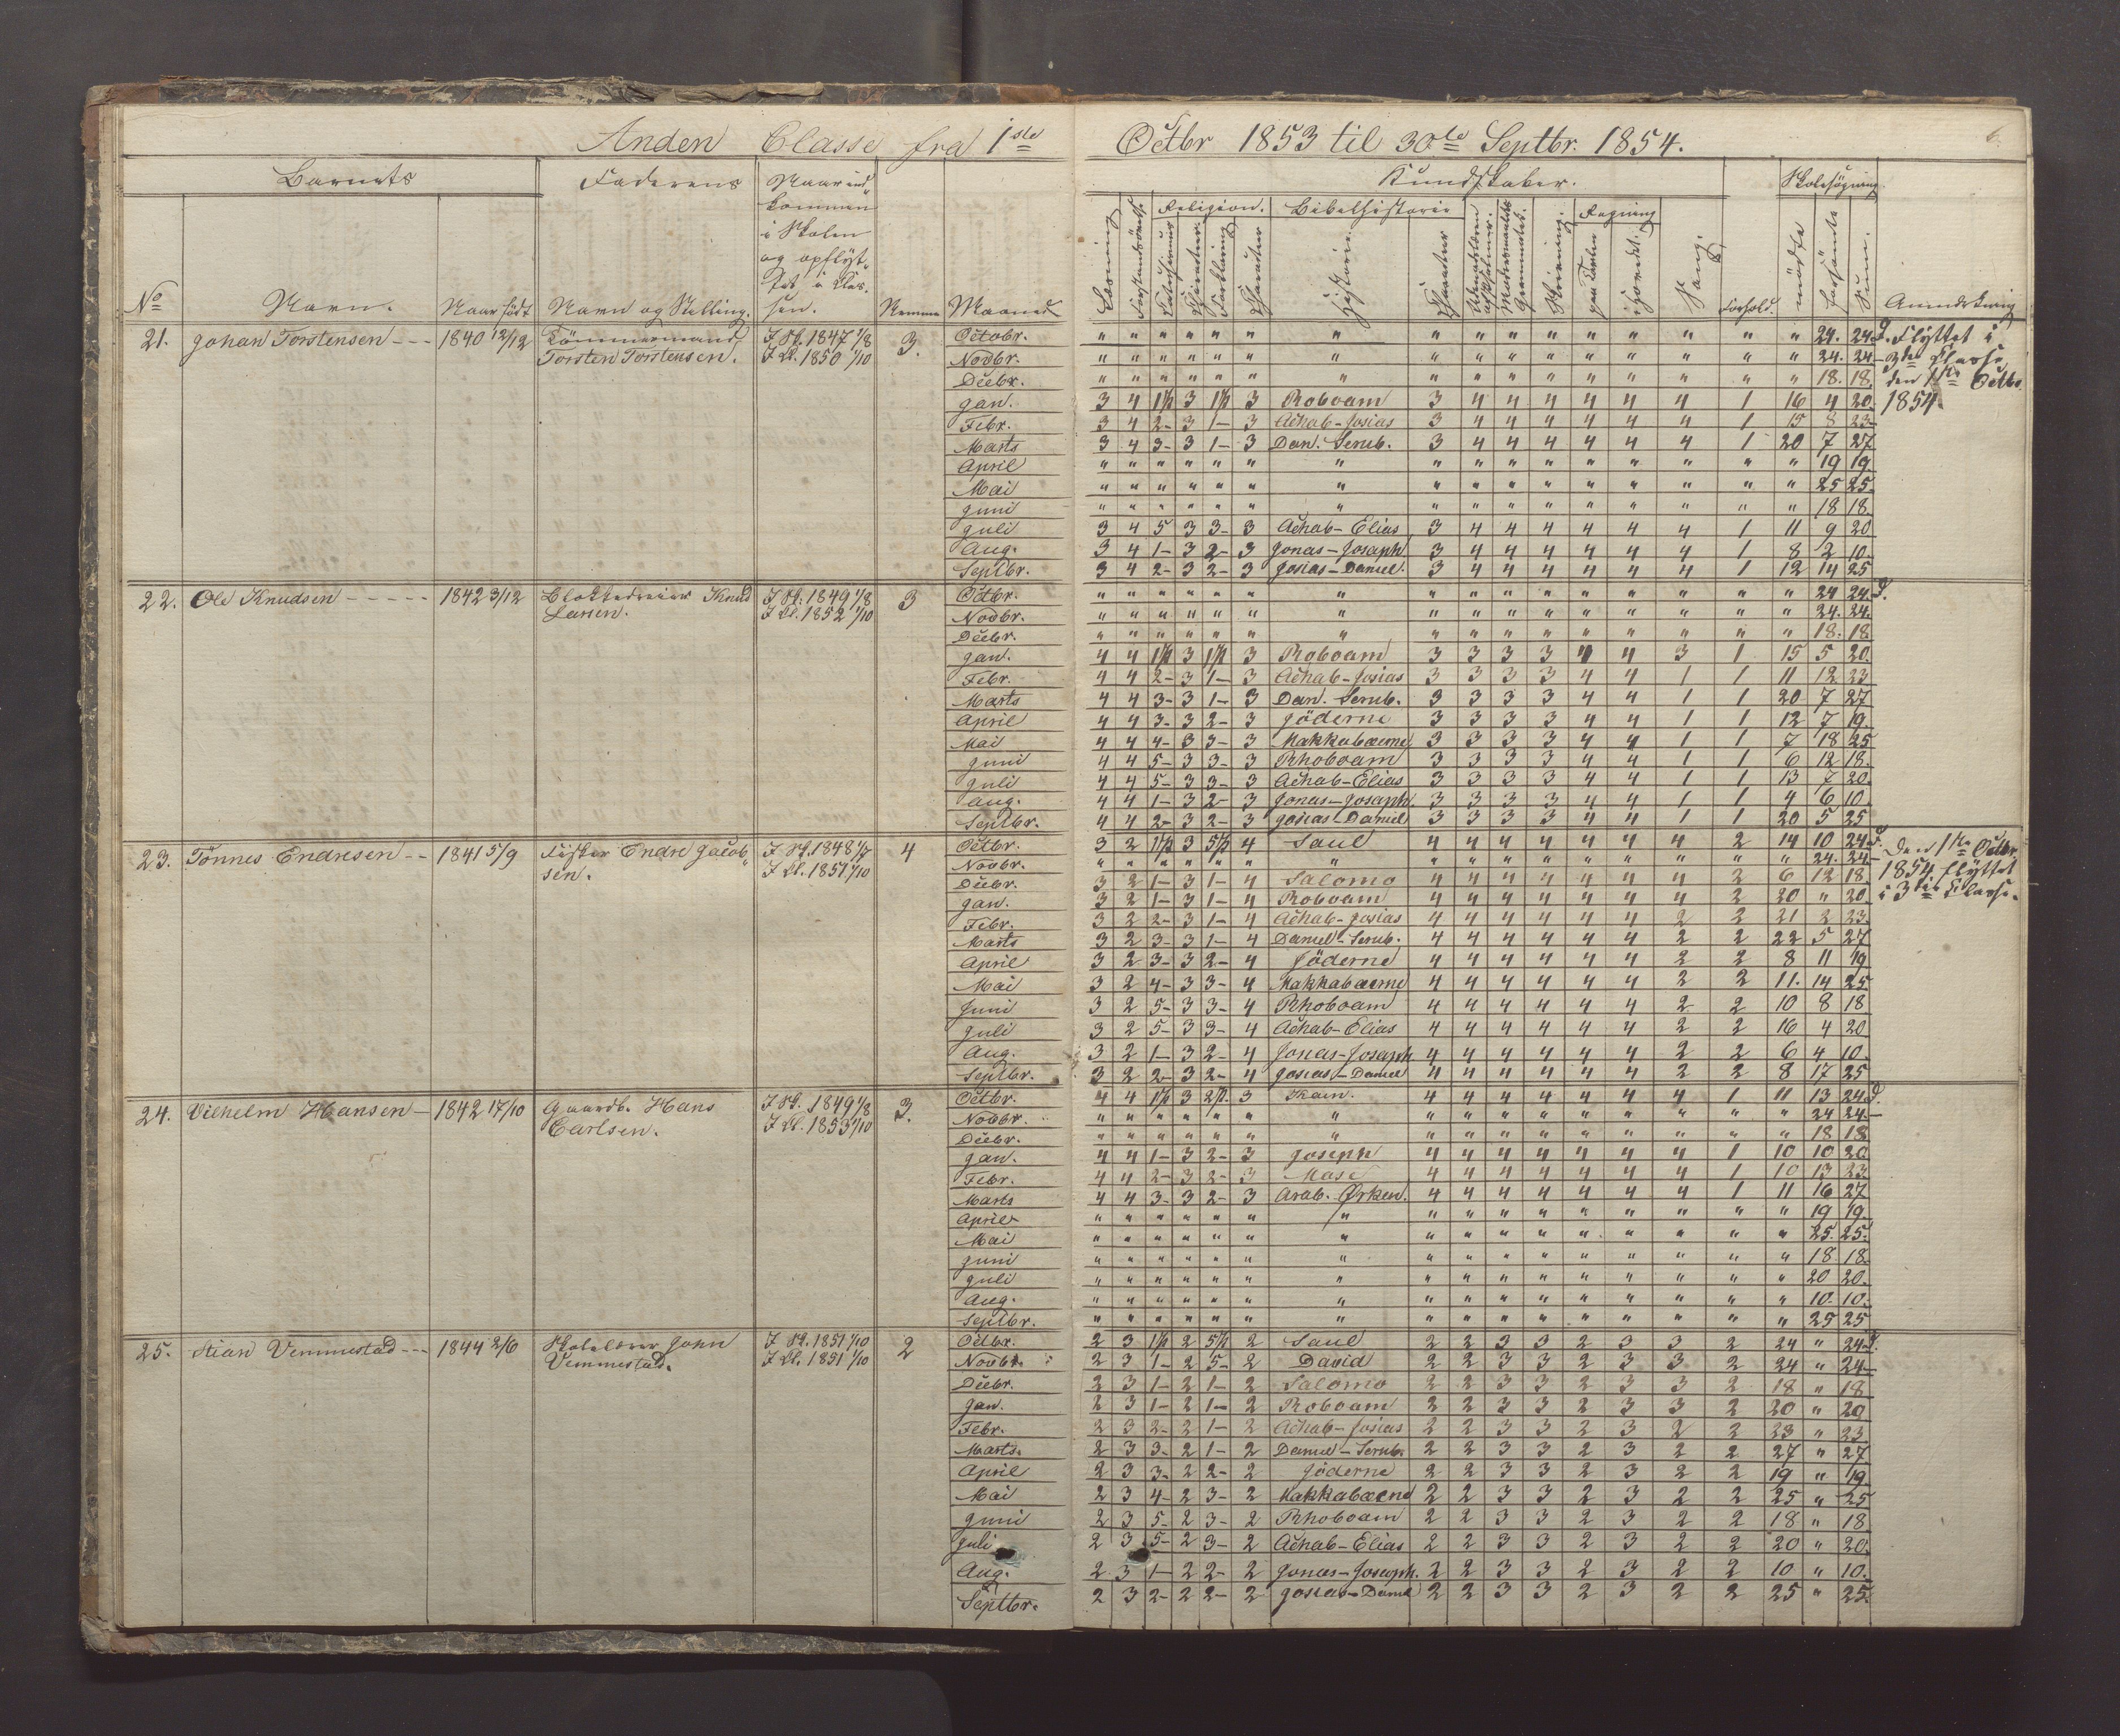 Anden Classe fra 1ste Octbr 1853 til 30te Septbr. 1854.
6.
Barnets Faderens Naar ind- Kundskaber. Skolesøgning
kommen
i Skolen
og opflyt-
tet i Clas-
No Navn. Naar født Navn og Stilling. sen. Nemme Maaned
Religion. Bibelhistorie Regning
Læsning Forklaring Charakter Historie. Charakter Skrivning. paa Tavlen i Hovedet. Sang. Forhold. mødte forsømte Sum. Anmærkning
21. Johan Torstensen - - - 1840 12/12 Tömmermand I Sk. 1847 1/8 3. Octobr. " " " " " " " " " " " " " " " " 24. 24. Flyttet i
Torsten Torstensen. I Cl. 1850 1/10 Novbr. " " " " " " " " " " " " " " " " 24. 24 3die Classe
Decbr. " " " " " " " " " " " " " " " " 18. 18. den 1ste Octbr.
Jan. 3 4 1 1/2 3 1 1/2 3 Roboam 3 4 4 4 4 4 4 1 16 4 20. 1854.
Febr. 3 4 2- 3 1- 3 Achab-Josias 3 4 4 4 4 4 4 1 15 8 23
Marts 3 4 3- 3 1- 3 Dan. Serub. 3 4 4 4 4 4 4 1 20 7 27
April " " " " " " " " " " " " " " " " 19 19.
Mai " " " " " " " " " " " " " " " " 25 25.
Juni " " " " " " " " " " " " " " " " 18 18.
Juli 3 4 5 3 3- 3 Achab-Elias 3 4 4 4 4 4 4 1 11 9 20
Aug. 3 4 1- 3 2- 3 Jonas-Josaph 3 4 4 4 4 4 4 1 8 2 10.
Septbr. 3 4 2- 3 2- 3 Josias-Daniel. 3 4 4 4 4 4 4 1 12 14 25
22. Ole Knudsen - - - - - 1842 3/12 Blokkedreier Knud I Sk. 1849 1/8 3 Octbr. " " " " " " " " " " " " " " " " 24 24.
Larsen. I Cl. 1852 1/10 Novbr. " " " " " " " " " " " " " " " " 24. 24.
Decbr. " " " " " " " " " " " " " " " " 18. 18
Jan. 4 4 1 1/2 3 1 1/2 3 Roboam 3 3 3 3 4 4 3 1 15 5 20.
Febr. 4 4 2- 3 1- 3 Achab-Josias 3 3 3 3 4 4 1 1 11 12 23
Marts 4 4 3- 3 1- 3 Dan. Serub. 3 3 3 3 4 4 1 1 20 7 27
April 4 4 3- 3 2- 3 Jöderne 3 3 3 3 4 4 1 1 12 7 19.
Mai 4 4 4- 3 3- 3 Makkabæerne 3 3 3 3 4 4 1 1 7 18 25
Juni 4 4 5- 3 3- 3 Rhoboam 3 3 3 3 4 4 1 1 6 12 18.
Juli 4 4 5- 3 3- 3 Achab-Elias 3 3 3 3 4 4 1 1 13 7 20.
Aug. 4 4 1- 3 2- 3 Jonas-Josaph. 3 3 3 3 4 4 1 1 4 6 10.
Septbr. 4 4 2- 3 2- 3 Josias-Daniel 3 3 3 3 4 4 1 1 20 5 25
23. Tönnes Endresen - - 1841 5/9 Fisker Endre Jacob- I Sk. 1848 1/7 4 Octbr. 3 2 1 1/2 3 5 1/2 4 Saul 4 4 4 4 4 4 4 2 14 10 24. Den 1ste Octbr.
sen. I Cl. 1851 1/10 Novbr. " " " " " " " " " " " " " " " " 24. 24. 1854 flyttet
Decbr. 3 2 1- 3 1- 4 Salomo 4 4 4 4 4 4 4 2 6 12 18. i 3die Classe.
Jan. 3 2 1- 3 1- 4 Roboam 4 4 4 4 4 4 4 2 20 " 20.
Febr. 3 2 2- 3 1- 4 Achab-Josias 4 4 4 4 4 4 2 2 21 2 23.
Marts 3 2 3- 3 1- 4 Daniel-Serub. 4 4 4 4 4 4 2 2 22 5 27
April 3 2 3- 3 2- 4 Jöderne 4 4 4 4 4 4 2 2 8 11 19
Mai 3 2 4- 3 3- 4 Makkabæerne 4 4 4 4 4 4 2 2 11. 14 25.
Juni 3 2 5- 3 3- 4 Rhoboam 4 4 4 4 4 4 2 2 10 8 18
Juli 3 2 5- 3 3- 4 Achab-Elias 4 4 4 4 4 4 2 2 16 4 20
Aug. 3 2 1- 3 2- 4 Jonas-Josaph 4 4 4 4 4 4 2 2 6 4 10.
Septbr. 3 2 2- 3 2- 4 Josias-Daniel 4 4 4 4 4 4 2 2 8 17 25
24. Vilhelm Hansen - 1842 17/10 Gaardb. Hans I Sk. 1849 1/8 3. Octbr. 4 4 1 1/2 3 2 1/2. 3 Kain. 4 4 4 4 4 4 4 1 11 13 24.
Carlsen. I Cl. 1853 1/10 Novbr. " " " " " " " " " " " " " " " " 24 24.-
Decbr. " " " " " " " " " " " " " " " " 18 18
Jan. 4 4 1- 3 2- 3 Joseph 4 4 4 4 4 4 4 1 10 10 20.
Febr. 4 4 2- 3 2- 3 Mose 4 4 4 4 4 4 4 1 10 13 23.
Marts 4 4 3- 3 2- 3 Arab. Ørken. 4 4 4 4 4 4 4 1 11 16 27
April " " " " " " " " " " " " " " " " 19 19.
Mai " " " " " " " " " " " " " " " " 25. 25.
Juni " " " " " " " " " " " " " " " " 18 18.
Juli " " " " " " " " " " " " " " " " 20 20.
Aug. " " " " " " " " " " " " " " " " 10. 10.
Septbr. " " " " " " " " " " " " " " " " 25 25
25. Stian Vemmestad - - - 1844 2/6 Skolelærer John I Sk. 1851 1/10 2 Octbr. 2 3 1 1/2 2 5 1/2 2 Saul 2 2 3 3 2 3 3 2 24 " 24.
Vemmestad. I Cl. 1851 1/10 Novbr. 2 3 1- 2 5- 2 David 2 2 3 3 2 3 3 2 24 " 24-
Decbr. 2 3 1- 2 1- 2 Salomo 2 2 3 3 2 3 3 2 18 " 18
Jan. 2 3 1- 2 1- 2 Roboam 2 2 3 3 2 3 3 2 20 " 20
Febr. 2 3 2- 2 1- 2 Achab-Josias 2 2 3 3 2 3 2 2 23 " 23.
Marts. 2 3 3- 2 1- 2 Daniel-Serub. 2 2 3 3 2 3 2 2 27 " 27
April 2 3 3- 2 2- 2 Jöderne 2 2 3 3 2 3 2 2 19 " 19.
Mai 2 3 4- 2 3- 2 Makkabæerne 2 2 3 3 2 3 2 2 25 " 25
Juni 2 3 5- 2 3- 2 Rhoboam 2 2 3 3 2 3 2 2 18 " 18
Juli 2 3 5- 2 3- 2 Achab-Elias 2 2 3 3 2 3 2 2 20 " 20.
Aug. 2 3 1- 2 2- 2 Jonas-Josaph. 2 2 3 3 2 3 2 2 10 " 10.
Septbr. 2 3 2- 2 2- 2 Josias-Daniel 2 2 3 3 2 3 2 2 25 " 25.